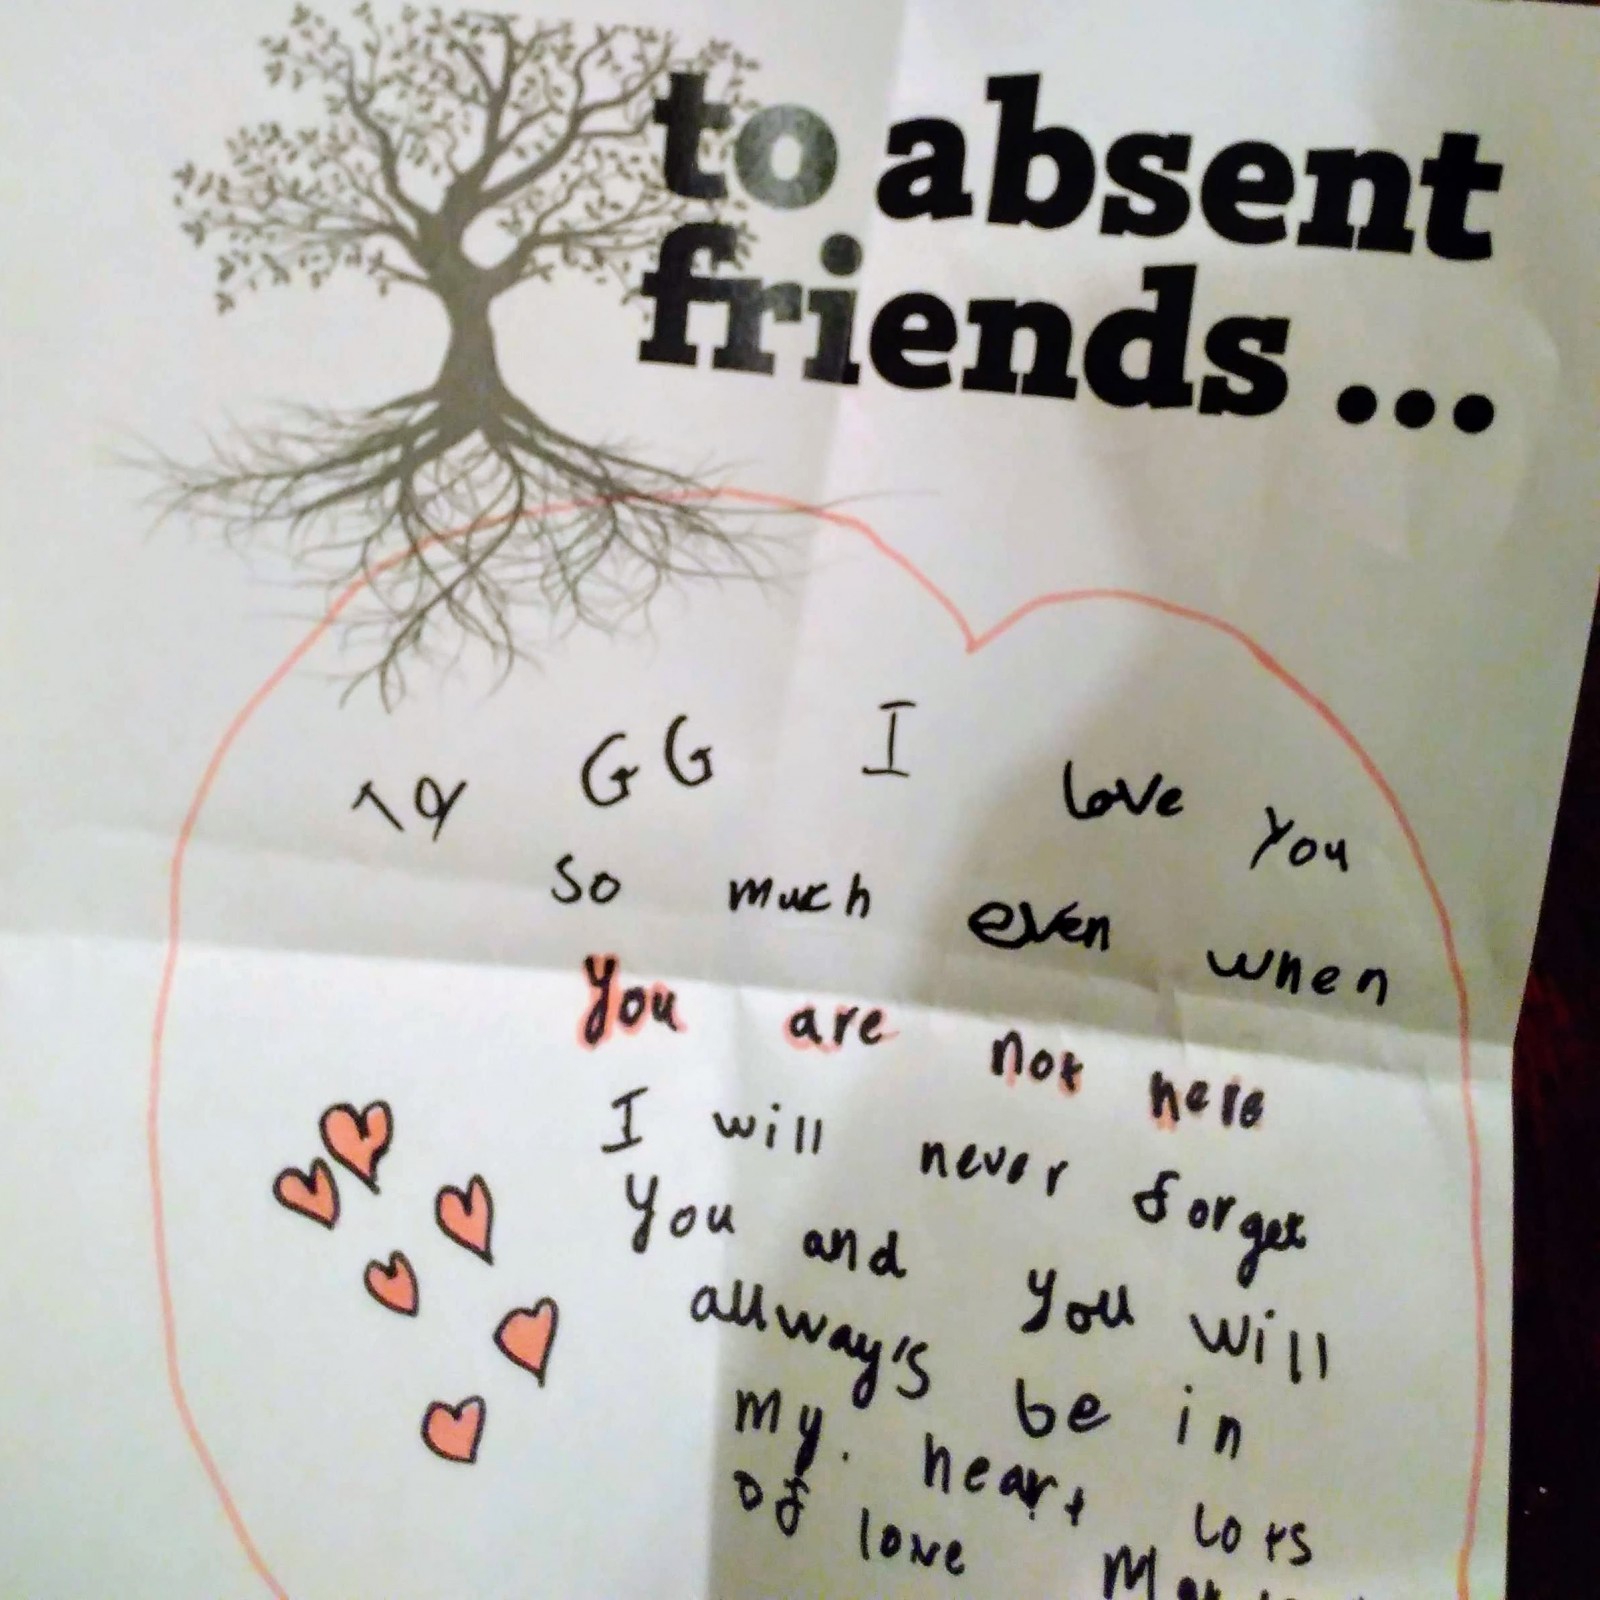 to absent
friends ...
To GG I love you
so much even when
you are not here
I will never forget
you and you will
allway's be in
my. heart lots
of love